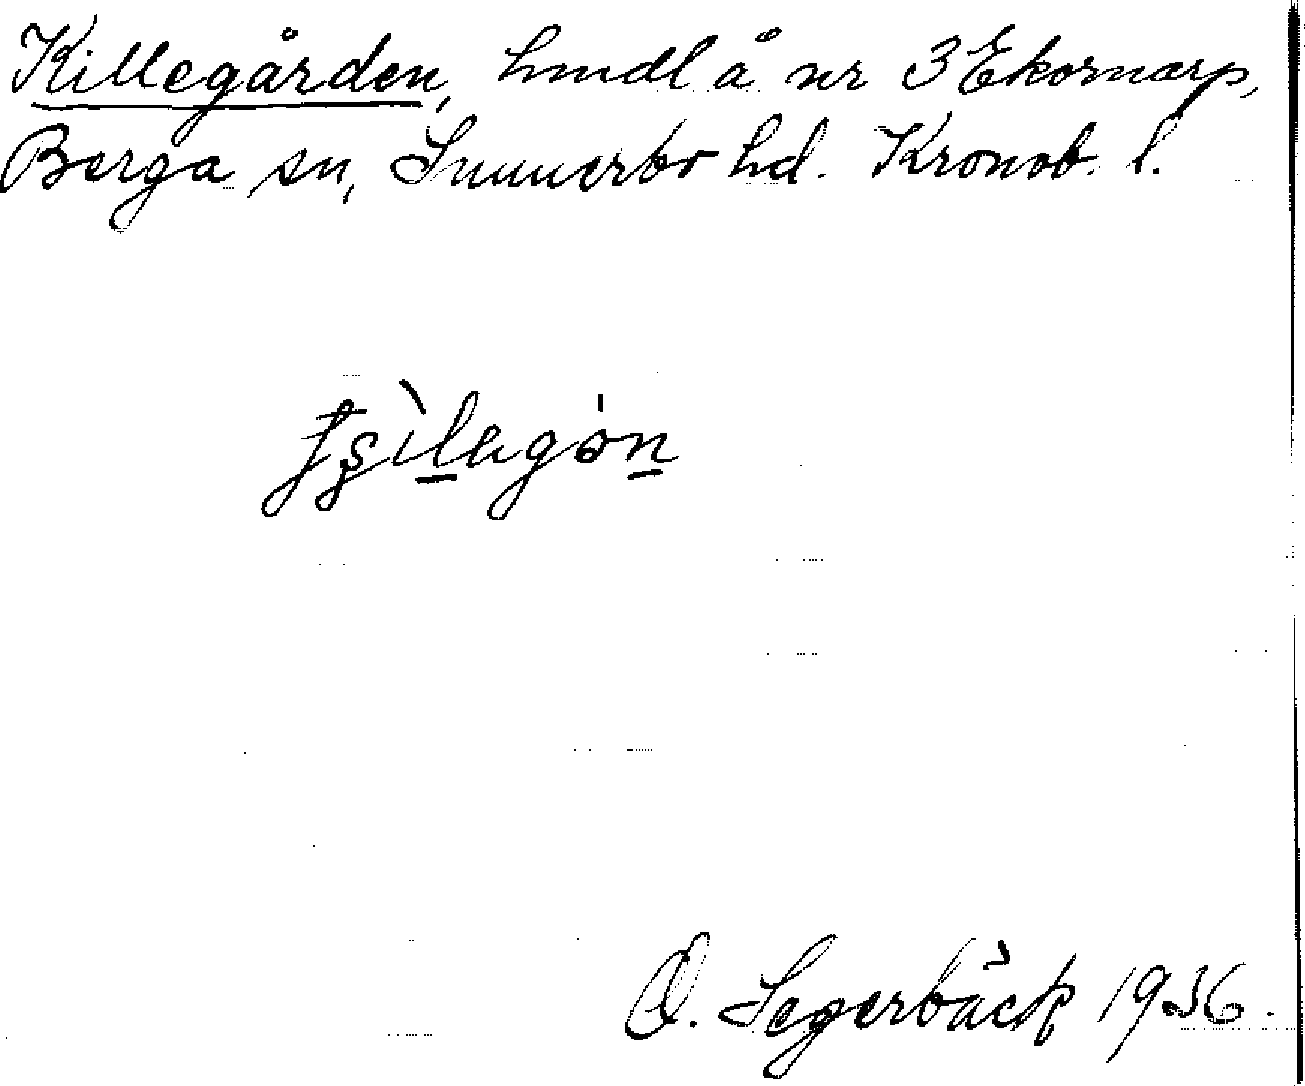 Killegården, hmdl å nr 3 Ekornarp,
Berga sn, Sunnerbo hd. Kronob. l.
O. Segerbäck 1936.